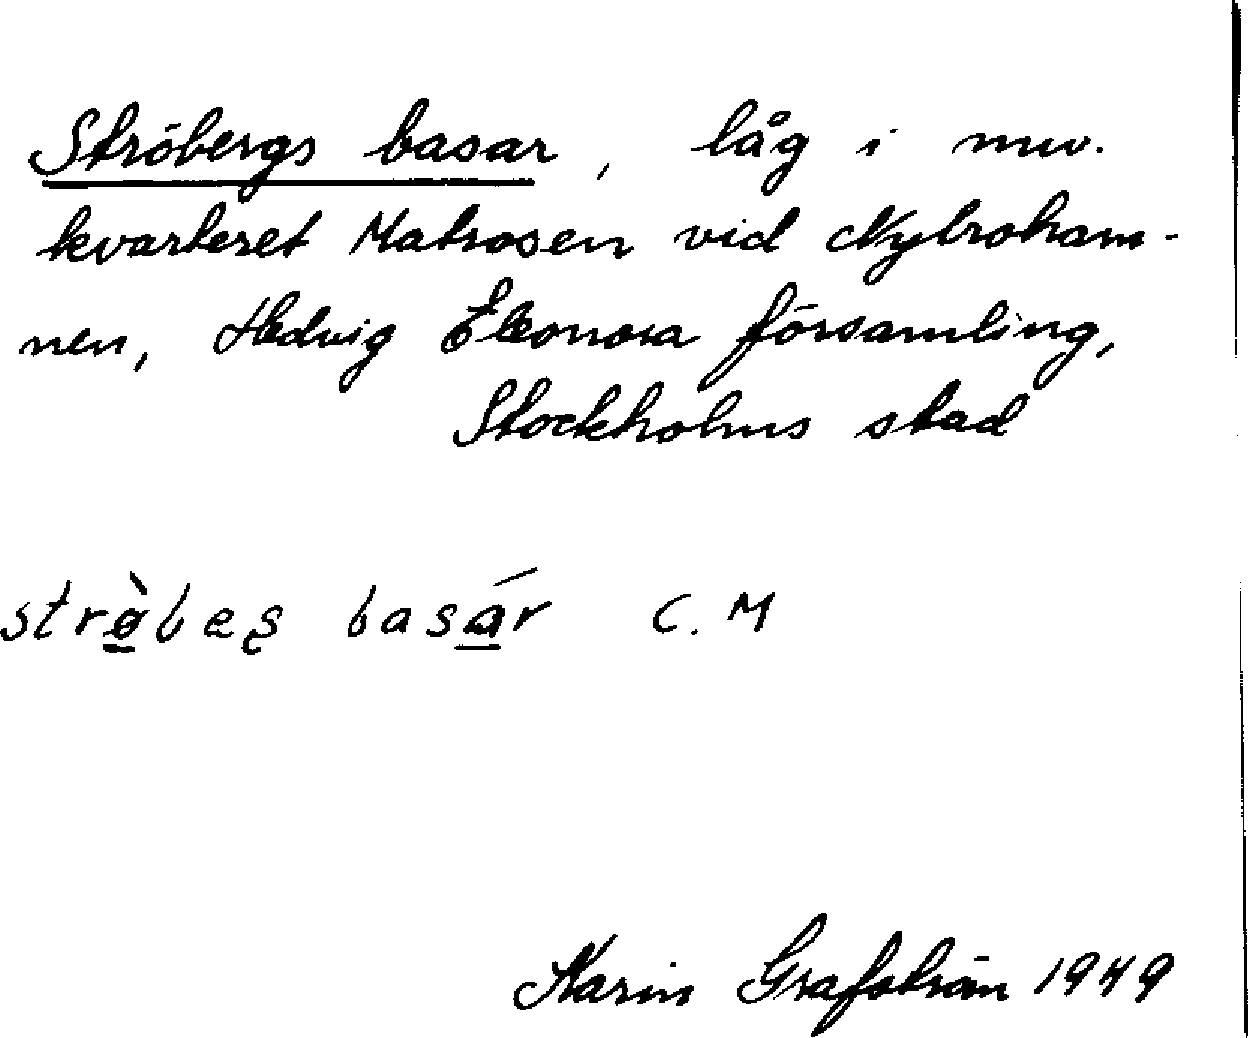 Ströbergs basar, låg i nuv.
kvarteret Matrosen vid Nybroham-
nen, Hedvig Eleonora församling,
Stockholms stad
strø̀beʂ basár C. M
Karin Grafström 1949